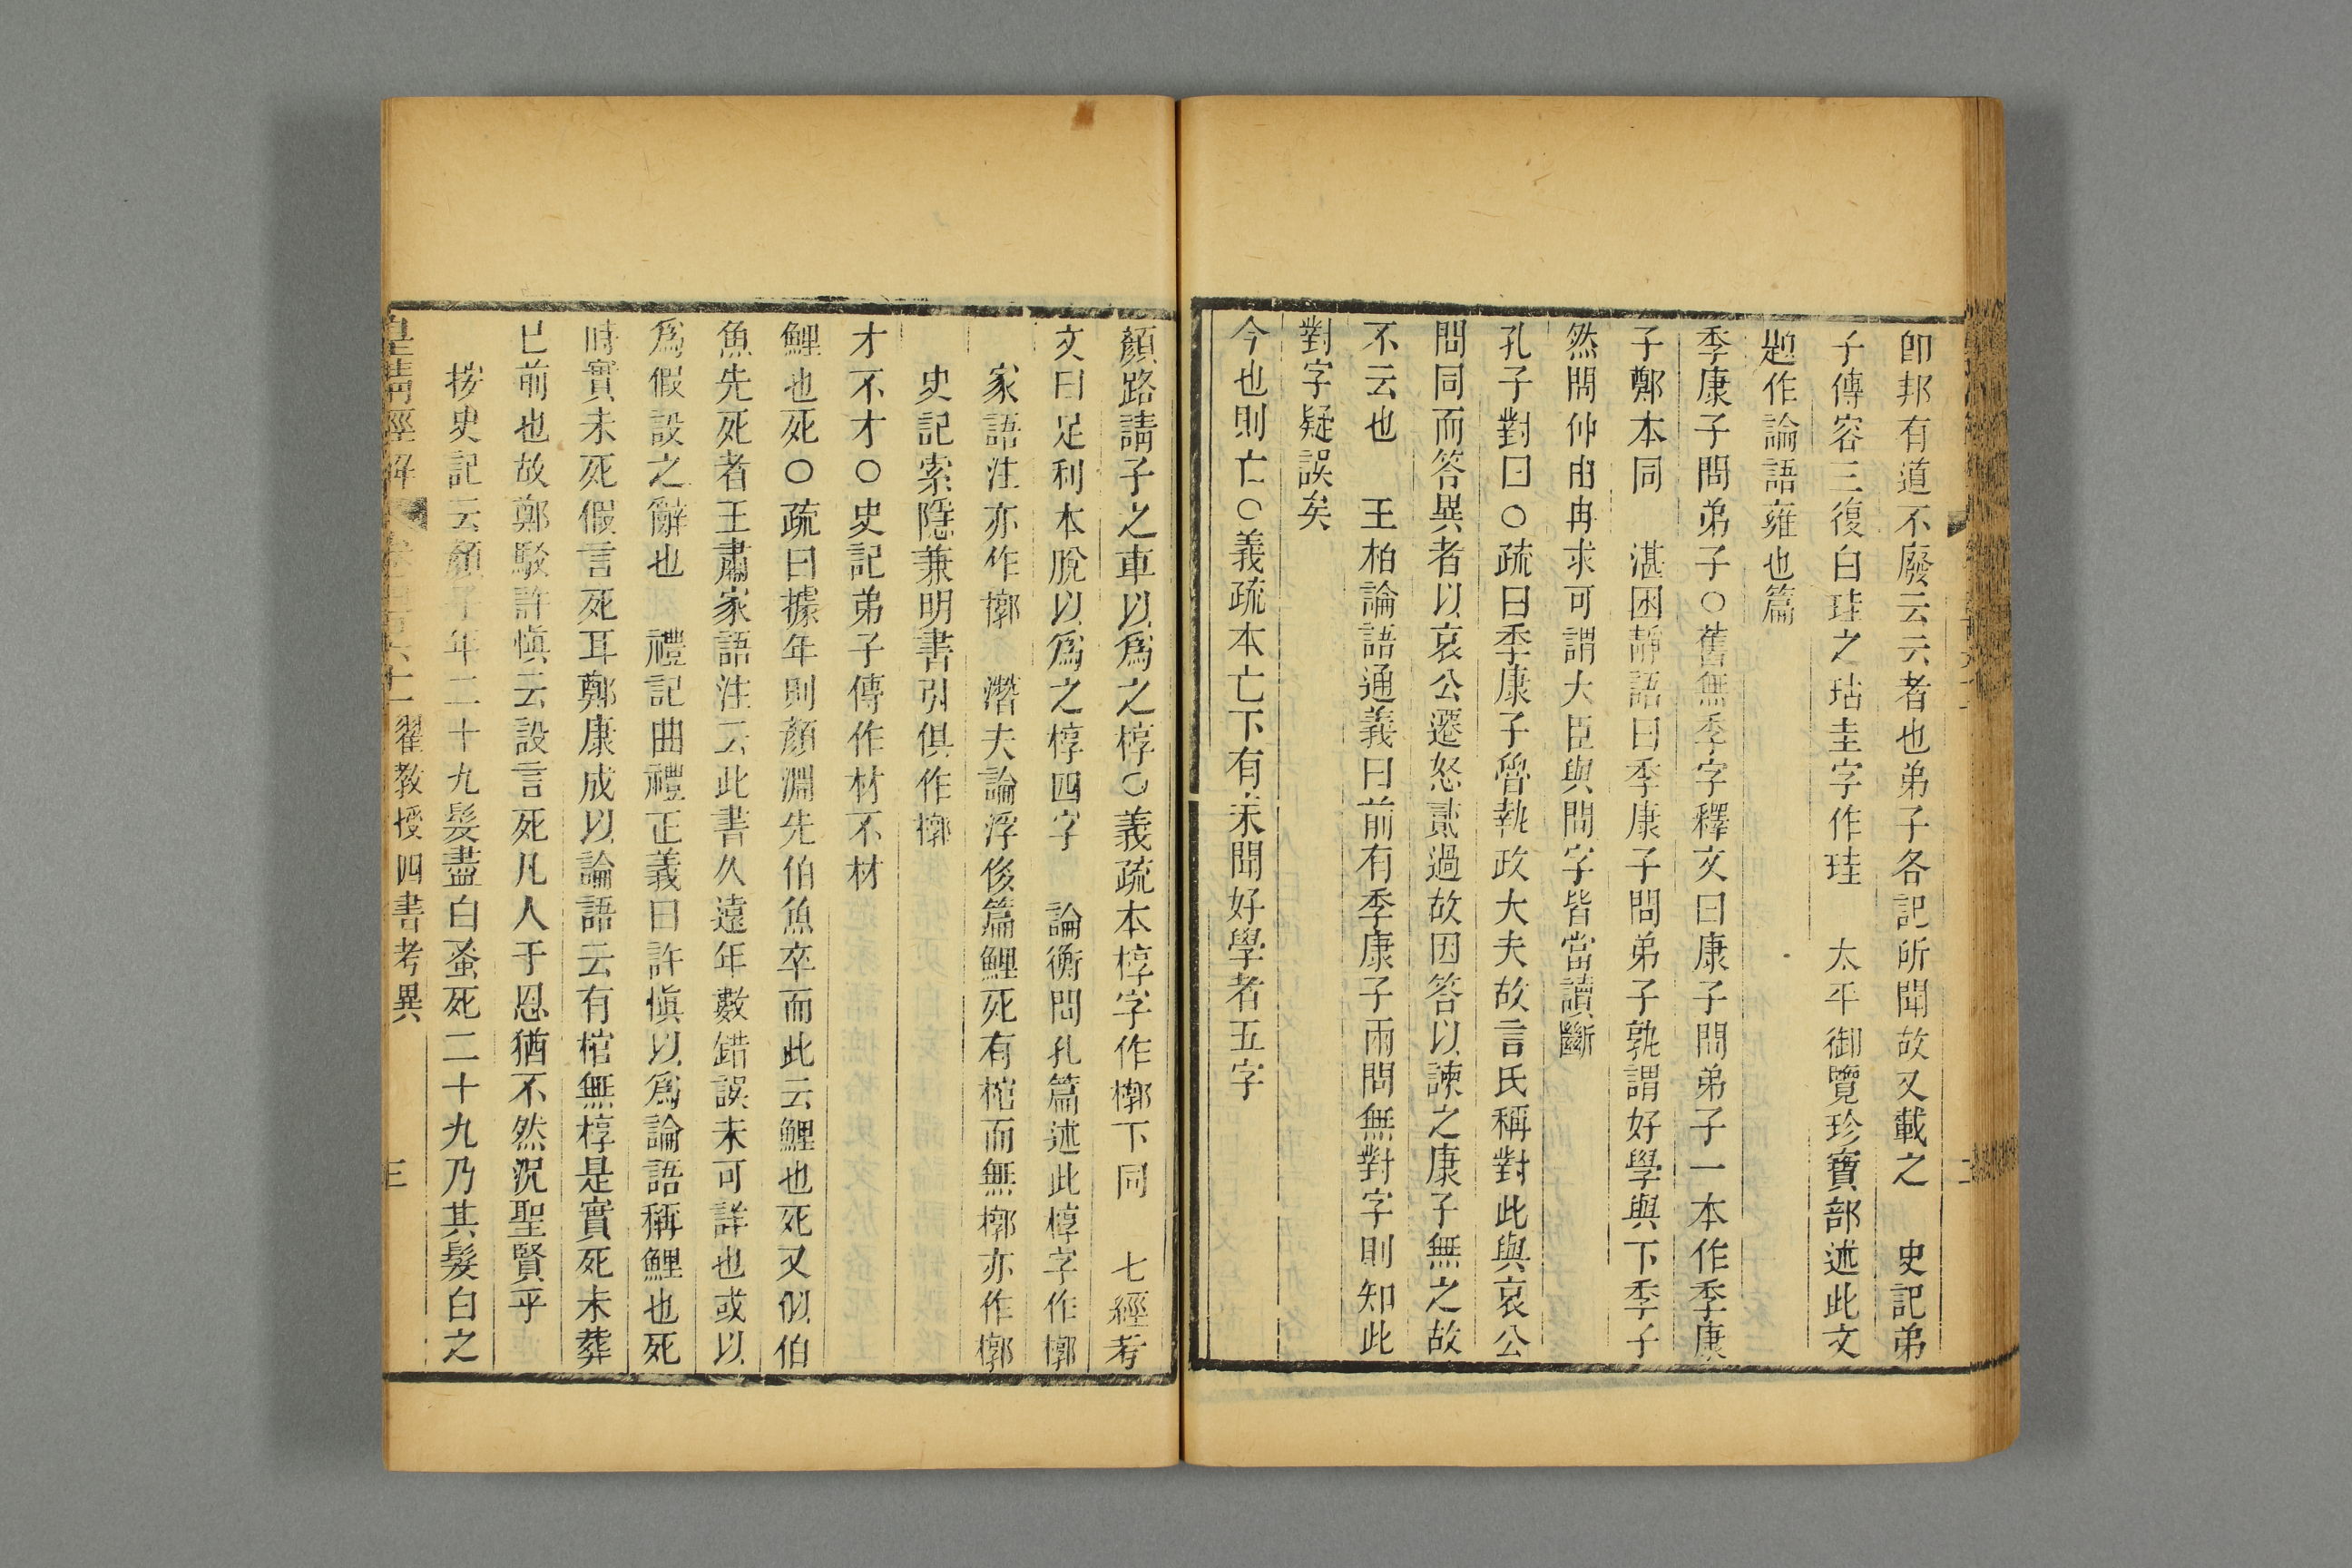 卽邦有道不廢云云者也弟子各記所聞故又載之　史記弟
子傳容三復白珪之玷圭字作珪　太平御覽珍寶部述此文
題作論語雍也篇
季康子問弟子○舊無季字釋文曰康子問弟子一本作季康
子鄭本同　湛困靜語曰季康子問弟子孰謂好學與下季子
然問仲由冉求可謂大臣與問字皆當讀斷
孔子對曰○疏曰季康子魯執政大夫故言氏稱對此與哀公
問同而答異者以哀公遷怒貳過故因答以諫之康子無之故
不云也　王柏論語通義曰前有季康子兩問無對字則知此
對字疑誤矣
今也則亡○義疏本亡下有未聞好學者五字
顏路請子之車以爲之椁○義疏本椁字作槨下同　七經考
文曰足利本脫以爲之椁四字　論衡問孔篇述此椁字作槨
家語注亦作槨　潛夫論浮侈篇鯉死有棺而無槨亦作槨
史記索隱兼明書引俱作槨
才不才○史記弟子傳作材不材
鯉也死○疏曰據年則顏淵先伯魚卒而此云鯉也死又似伯
魚先死者王肅家語注云此書久遠年數錯誤未可詳也或以
爲假設之辭也　禮記曲禮正義曰許愼以爲論語稱鯉也死
時實未死假言死耳鄭康成以論語云有棺無椁是實死未葬
已前也故鄭駁許愼云設言死凡人于恩猶不然況聖賢乎
按史記云顏子年二十九髮盡白蚤死二十九乃其髮白之
皇淸經解　翟敎授四書考異　三